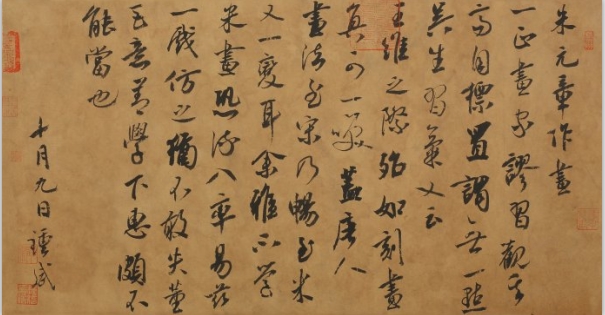 朱元章作畫
一正畫家謬習觀其
高自標置謂無一點
吳生習氣又云
王維之際殆如刻畫
真可一笑蓋唐人
畫法至宋乃暢至米
又一變耳余雅不學
米畫恐流入率易茲
一戲仿之猶不敢失董
巨意善學下惠頗不
能當也
十月九日